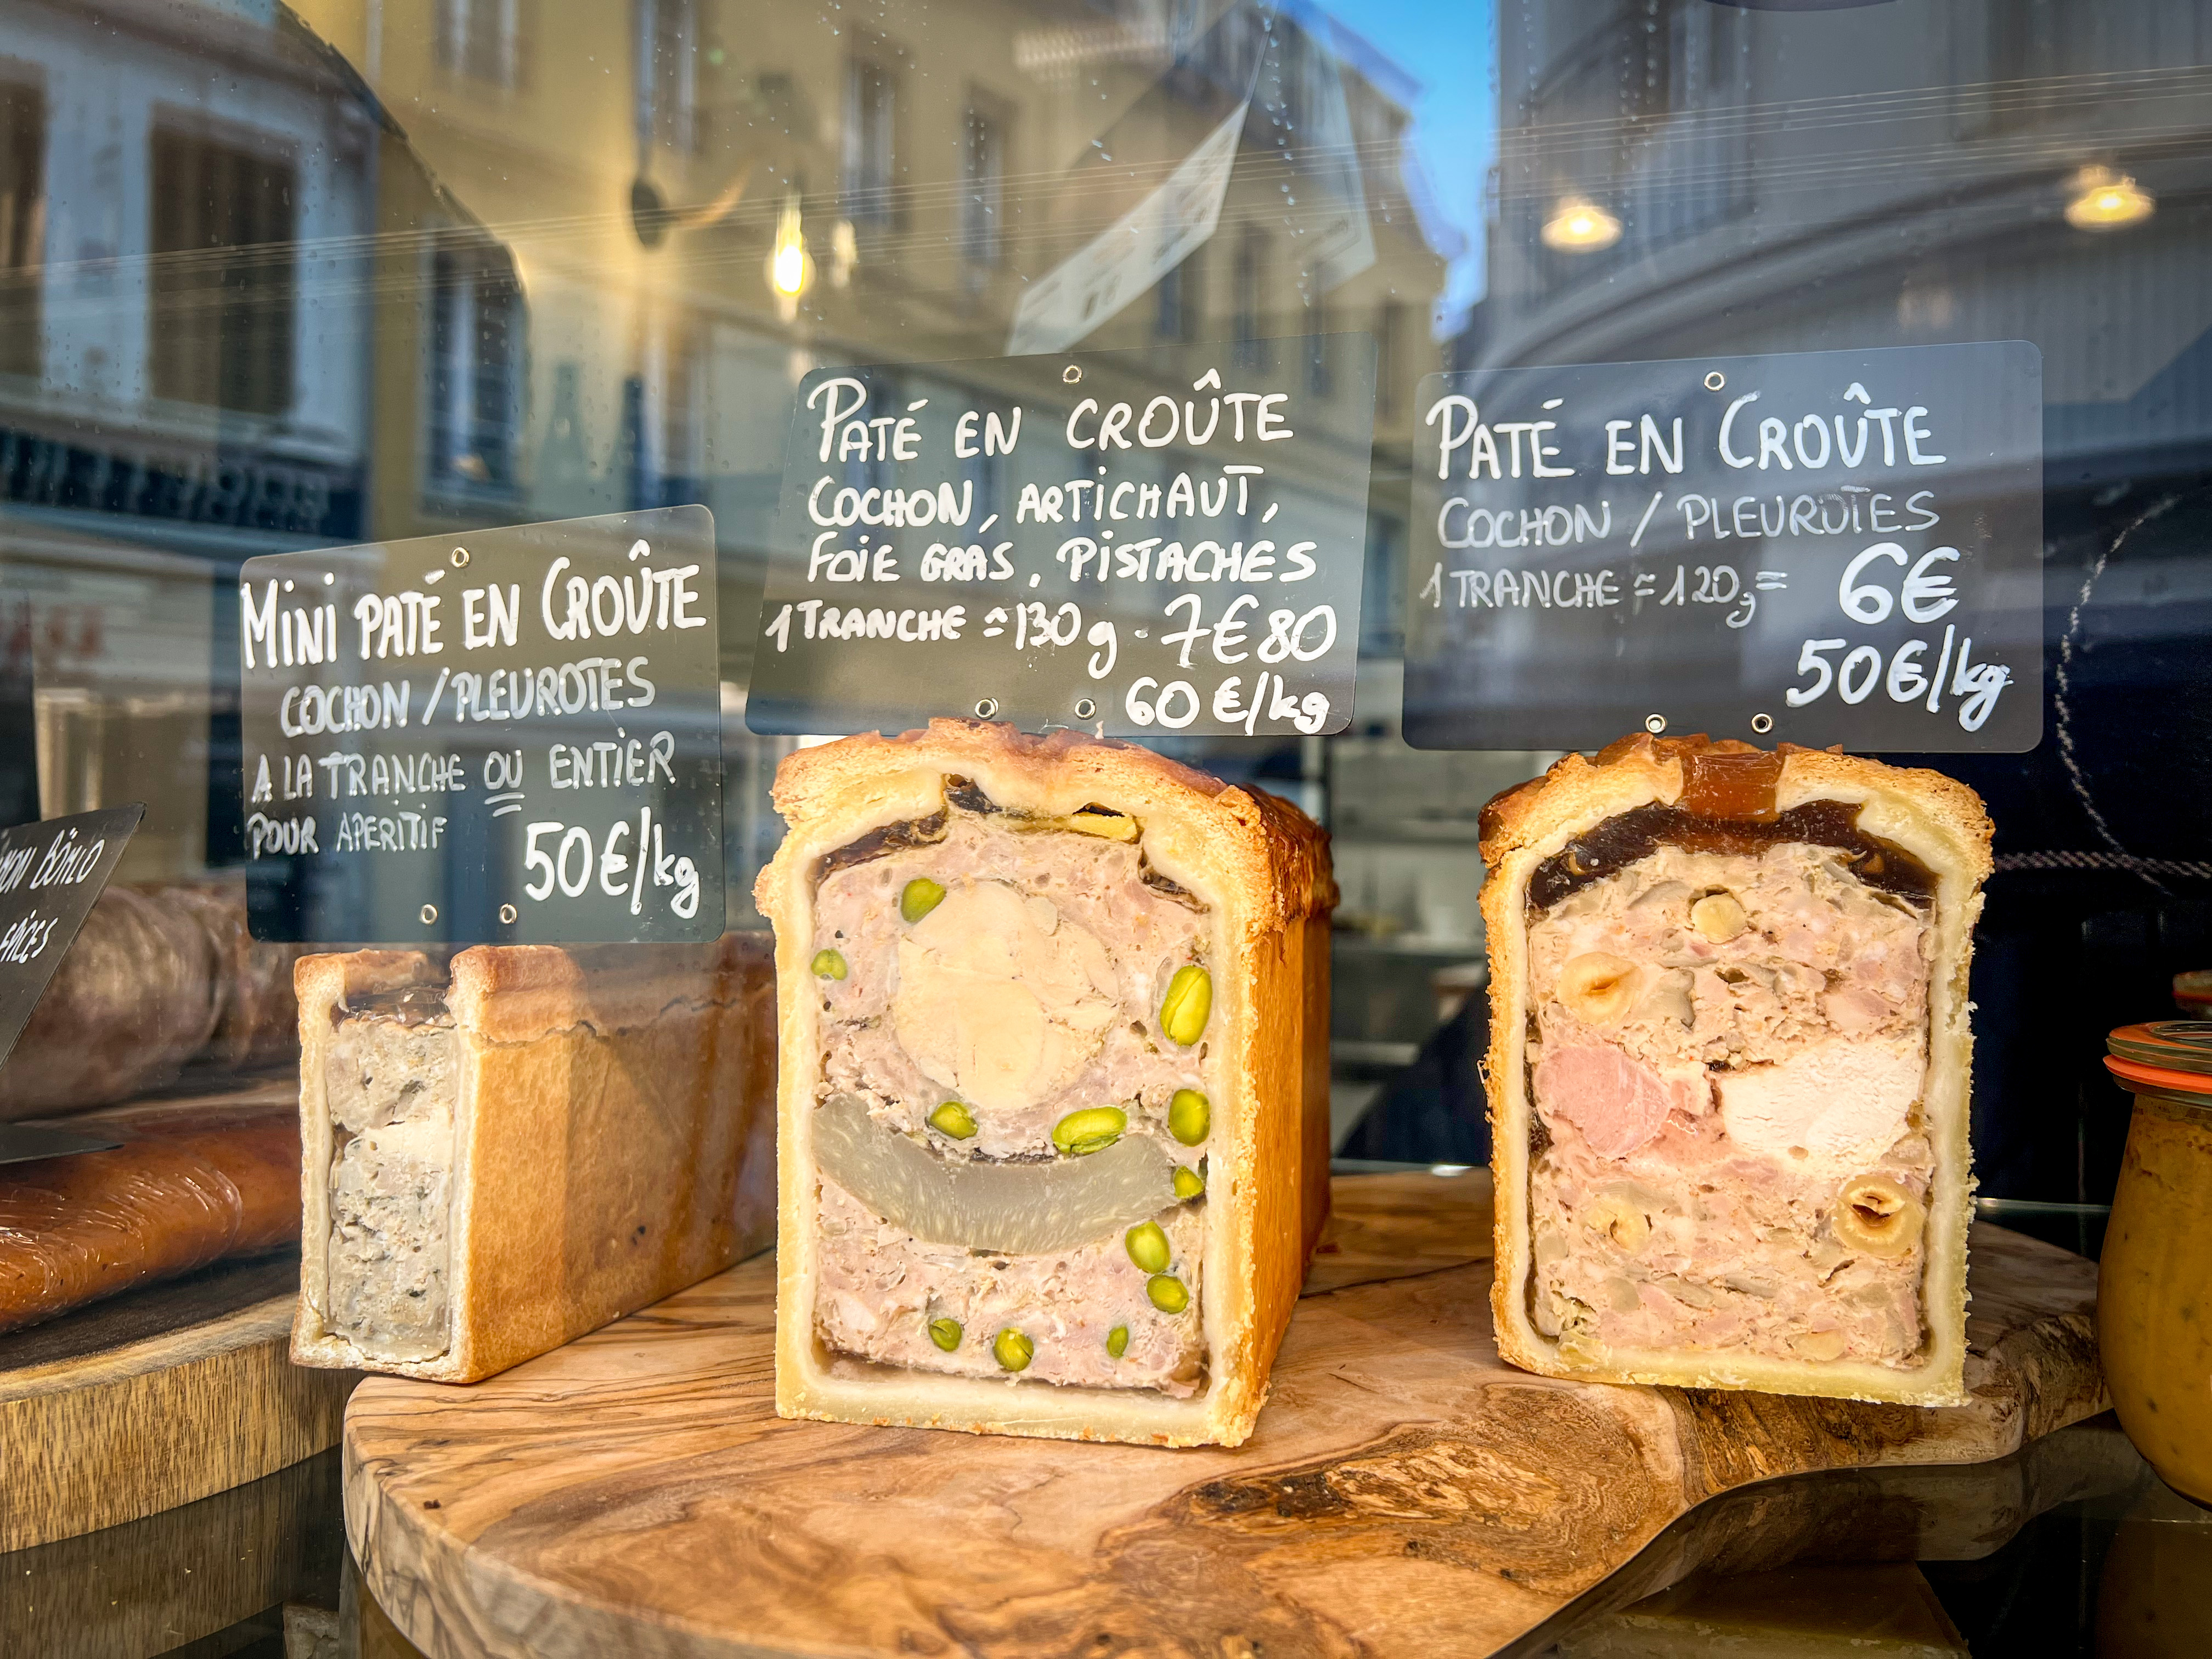 Mini PATÉ EN CROÛTE
COCHON / PLEUROTES
A LA TRANCHE OU ENTIER
POUR APERITIF
50€/kg
PATÉ EN CROÛTE
COCHON, ARTICHAUT,
FOIE GRAS, PISTACHES
1 TRANCHE ≃ 130g - 7€80
60€/kg
PATÉ EN CROÛTE
COCHON / PLEUROTES
1 TRANCHE ≃ 120g = 6€
50€/kg